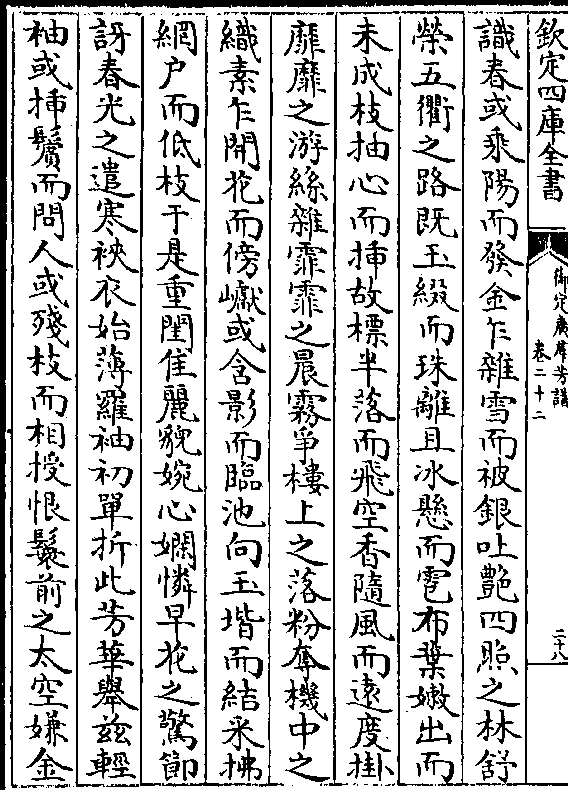 欽定四庫全書
御定廣羣芳譜
卷二十二
二十八
識春或乘陽而發金乍雜雪而被銀吐艶四照之林舒
榮五衢之路既玉綴而珠離且冰懸而雹布葉嫩出而
未成枝抽心而插故標半落而飛空香隨風而遠度掛
靡靡之游絲雜霏霏之晨霧爭樓上之落粉奪機中之
織素乍開花而傍巘或含影而臨池向玉堦而結采拂
網户而低枝于是重閨佳麗貌婉心嫻憐早花之驚節
訝春光之遣寒裌衣始薄羅袖初單折此芳華舉兹輕
袖或插鬢而問人或殘枝而相授恨鬟前之太空嫌金